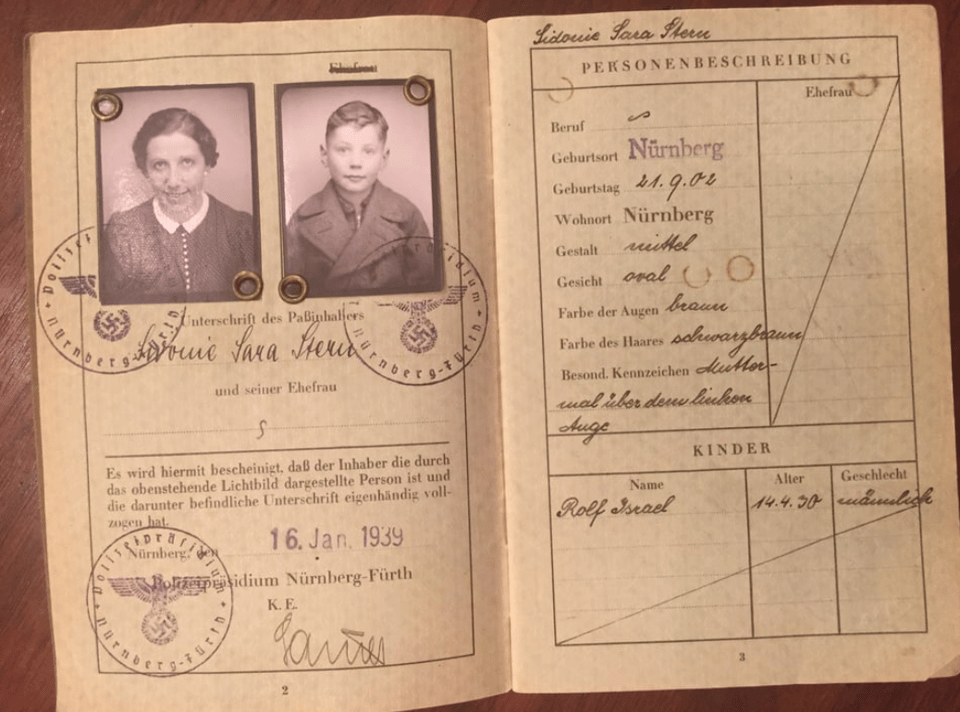 Ehefrau
Unterschrift des Paßinhabers
Sidonie Sara Stern
und seiner Ehefrau
Es wird hiermit bescheinigt, daß der Inhaber die durch
das obenstehende Lichtbild dargestellte Person ist und
die darunter befindliche Unterschrift eigenhändig voll-
zogen hat.
Nürnberg, den 16. Jan. 1939
Polizeipräsidium Nürnberg-Fürth
K. E.
2
Polizeipräsidium
Nürnberg-Fürth
Polizeipräsidium
Nürnberg-Fürth
Polizeipräsidium
Nürnberg-Fürth
Sidonie Sara Stern
PERSONENBESCHREIBUNG
Ehefrau
Beruf
Geburtsort Nürnberg
Geburtstag 21.9.02
Wohnort Nürnberg
Gestalt mittel
Gesicht oval
Farbe der Augen braun
Farbe des Haares schwarzbraun
Besond. Kennzeichen Mutter-
mal über dem linken
Auge
KINDER
Name Alter Geschlecht
Rolf Israel 14.4.30 männlich
3